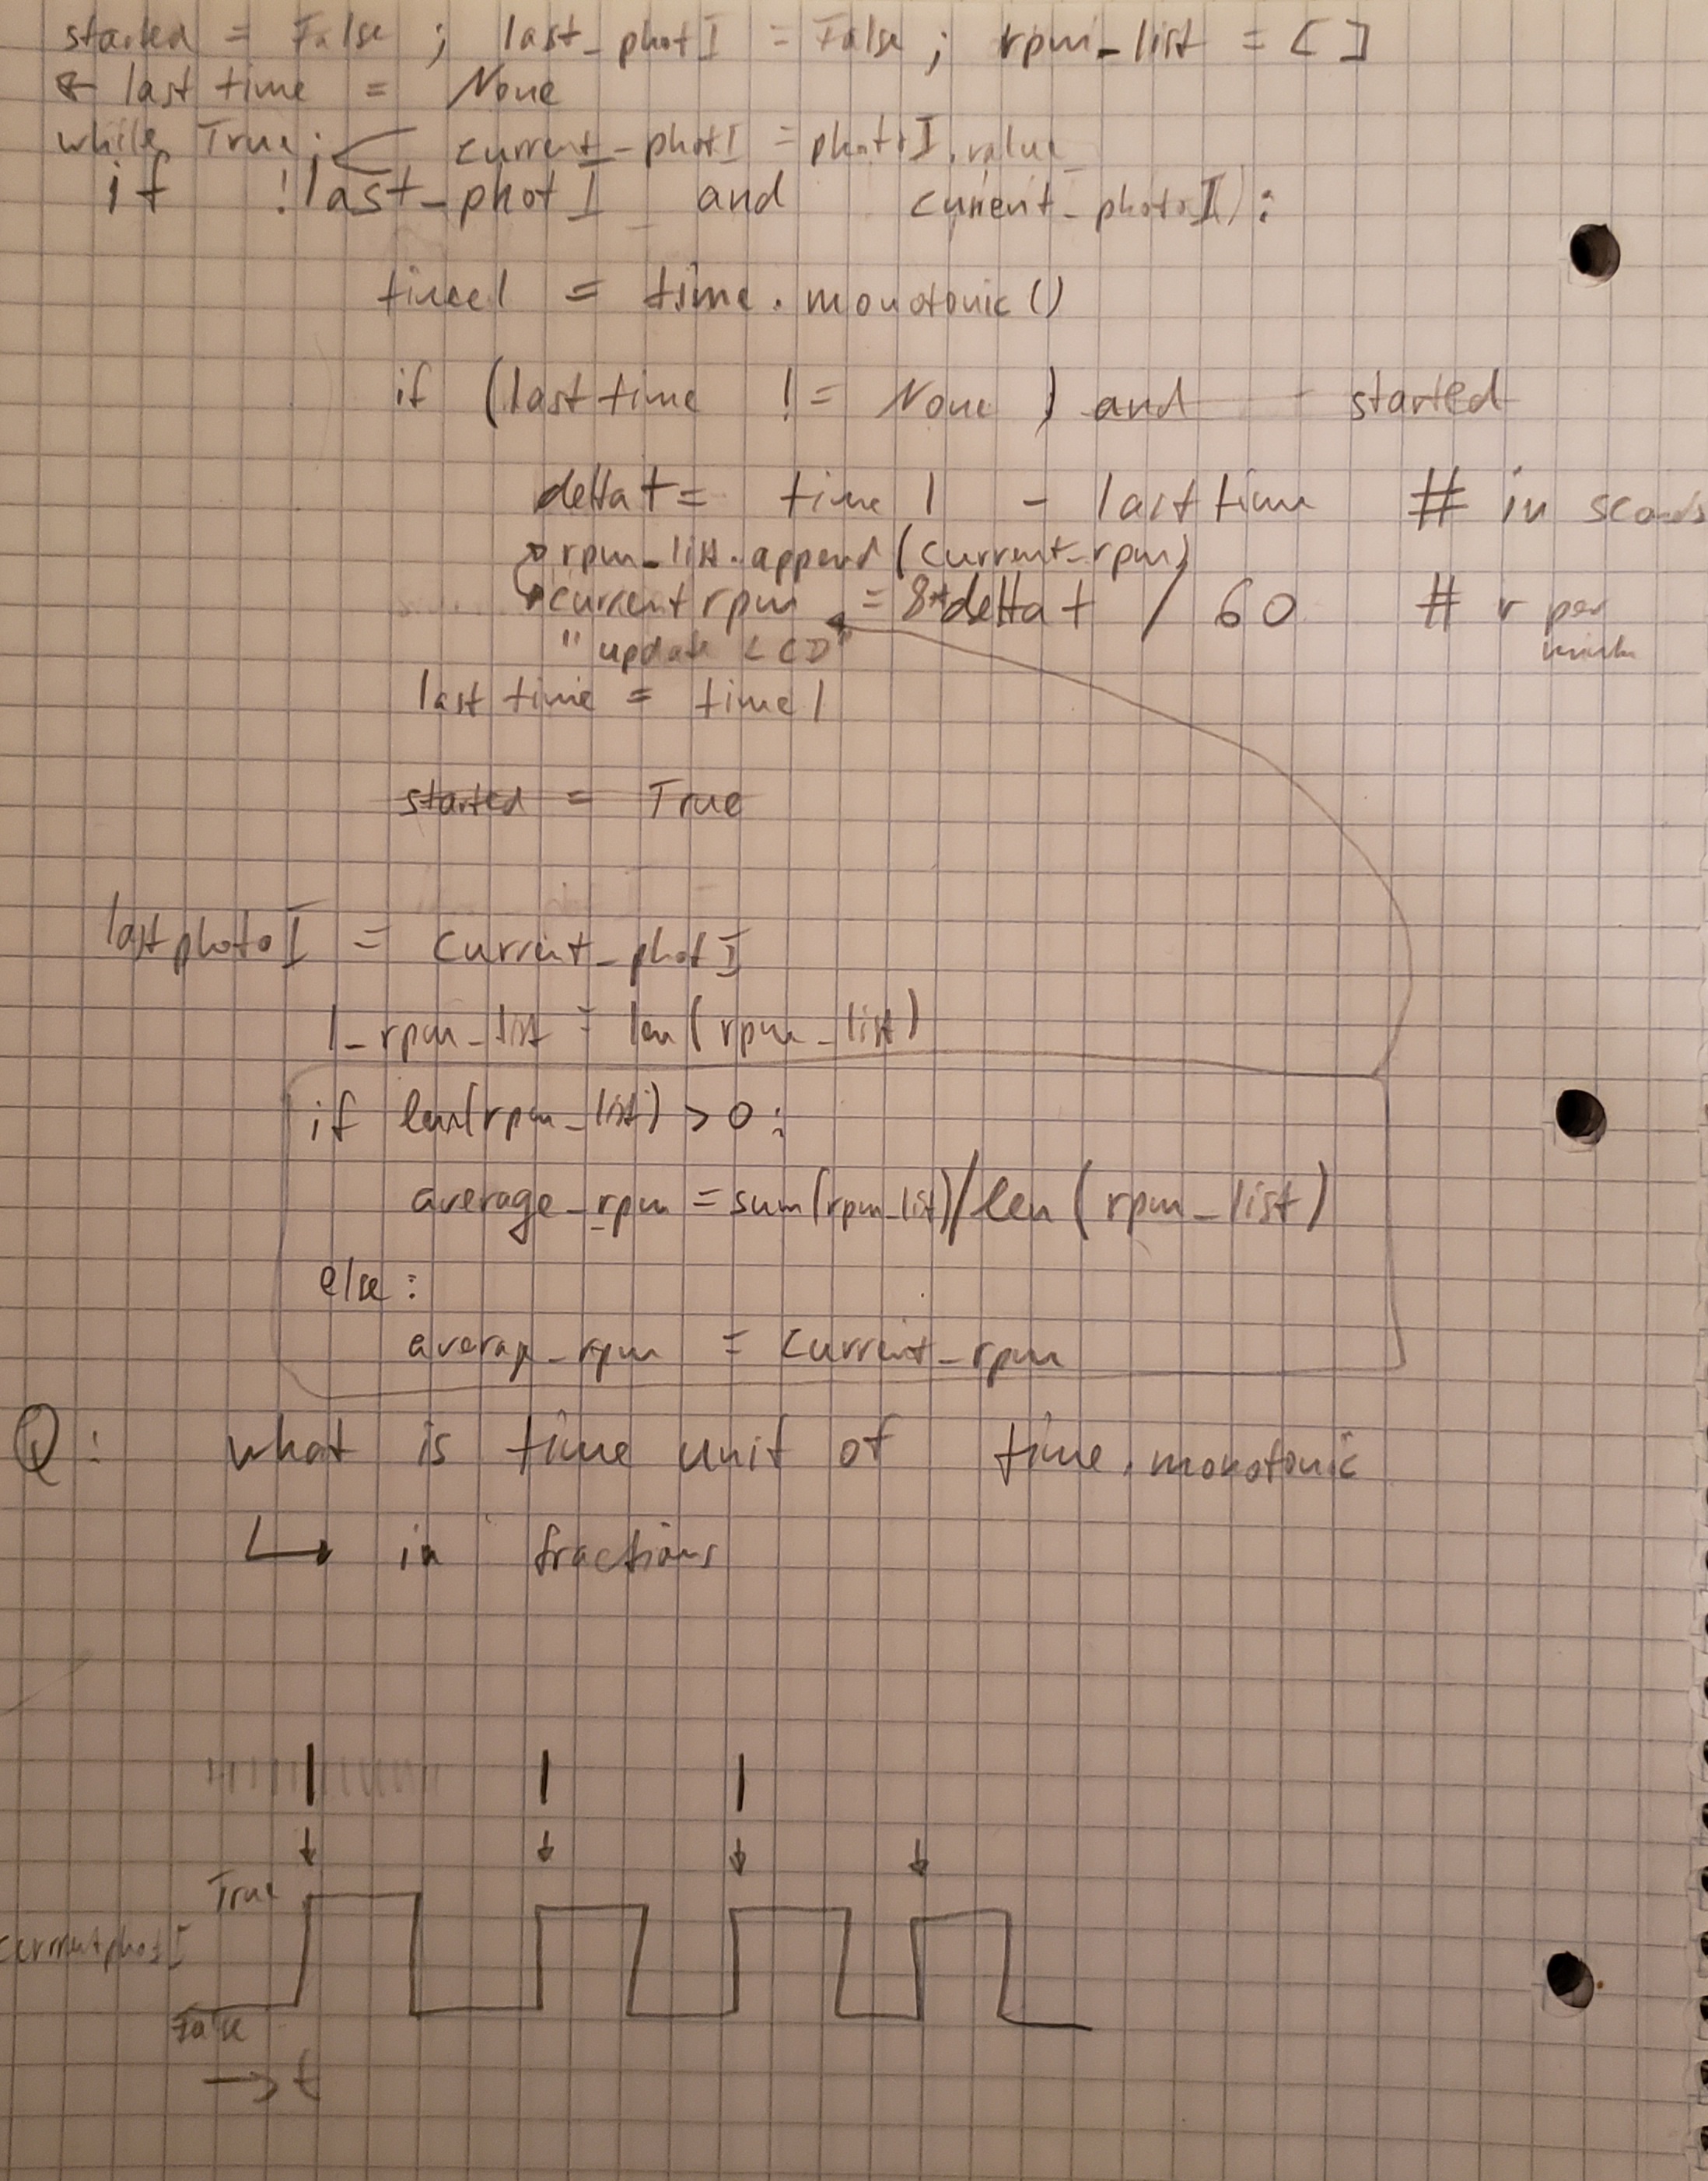 started = False ; last_photI = False ; rpm_list = [ ]
last time = None
while True: current_photI = photoI.value
if !last_photI and current_photoI):
time1 = time.monotonic()
if (last time != None) and started
delta t = time 1 - last time # in seconds
rpm_list.append(current_rpm)
current rpm = 8*delta t / 60 # r per minute
"update LCD"
last time = time1
started = True
last photoI = current_photI
l_rpm_list = len(rpm_list)
if len(rpm_list) > 0:
average_rpm = sum(rpm_list)/len(rpm_list)
else:
average_rpm = current_rpm
Q: what is time unit of time.monotonic
↳ in fractions
True
current photI
False
→ t